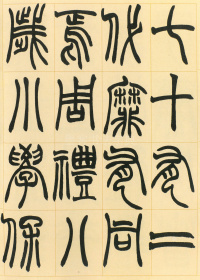 七十有二
代靡有同
焉周禮八
歲小學保